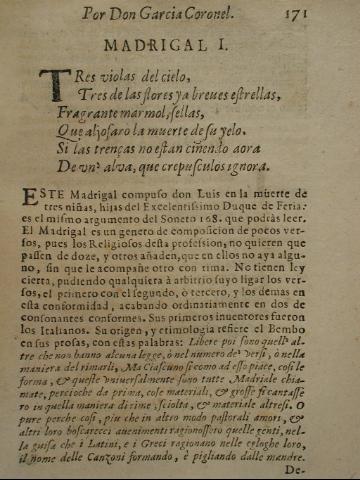 Por Don Garcia Coronel. 171
MADRIGAL I.
TRes violas del cielo,
Tres de las flores ya breues estrellas,
Fragrante marmol, sellas,
Que aljofarò la muerte de su yelo.
Si las trenças no estan ciñendo aora
De vna alva, que crepusculos ignora.
ESTE Madrigal compuso don Luis en la muerte de
tres niñas, hijas del Excelentissimo Duque de Feria:
es el mismo argumento del Soneto 168. que podràs leer.
El Madrigal es un genero de composicion de pocos ver-
sos, pues los Religiosos desta profession, no quieren que
passen de doze, y otros añaden, que en ellos no aya algu-
no, sin que le acompañe otro con rima. No tienen ley
cierta, pudiendo qualquiera à arbitrio suyo ligar los ver-
sos, el primero con segundo, ò tercero, y los demas en
esta conformidad, acabando ordinariamente en dos de
consonantes conformes. Sus primeros inuentores fueron
los Italianos. Su origen, y etimologia refiere el Bembo
en sus prosas, con estas palabras: Libere poi sono quell' al-
tre che non hanno alcuna legge, ò nel numero de' versi, ò nella
maniera del rimarli, Ma Ciascuno si como ad esso piace, cosi le
forma, & queste vniuersalmente sono tutte Madriale chia-
mate, percioche da prima, cose materiali, & grosse si cantasse-
ro in quella maniera di rime, sciolta, & materiale altresi. O
pure perche cosi, piu che in altro modo pastorali amori, & 
altri loro boscarecci auenimenti ragionassero quelle genti, nel-
la guisa che i Latini, e i Greci ragionano nelle egloghe loro,
il nome delle Canzoni formando, è pigliando dalle mandre.
De-